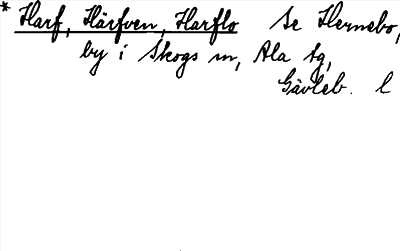 * Harf, Härfven, Harflo Se Hermebo,
by i Skogs sn, Ala tg,
Gävleb. l